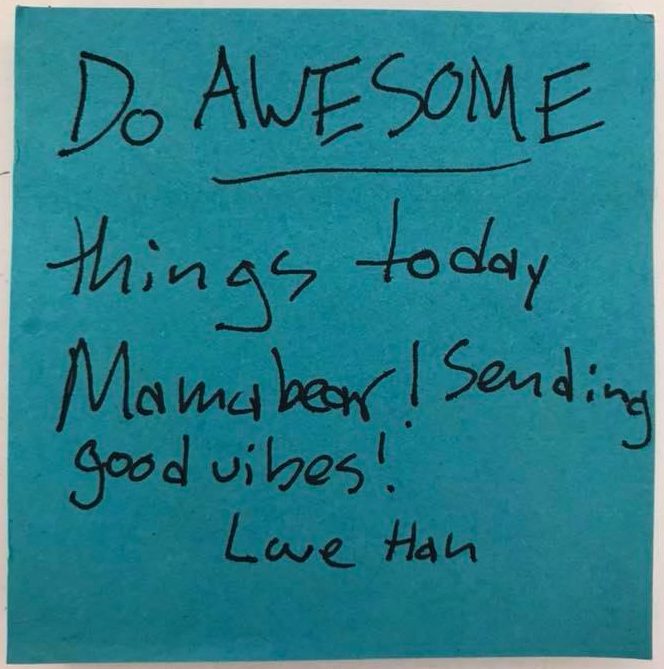 Do AWESOME
things today
Mamabear! Sending
good vibes!
Love Han